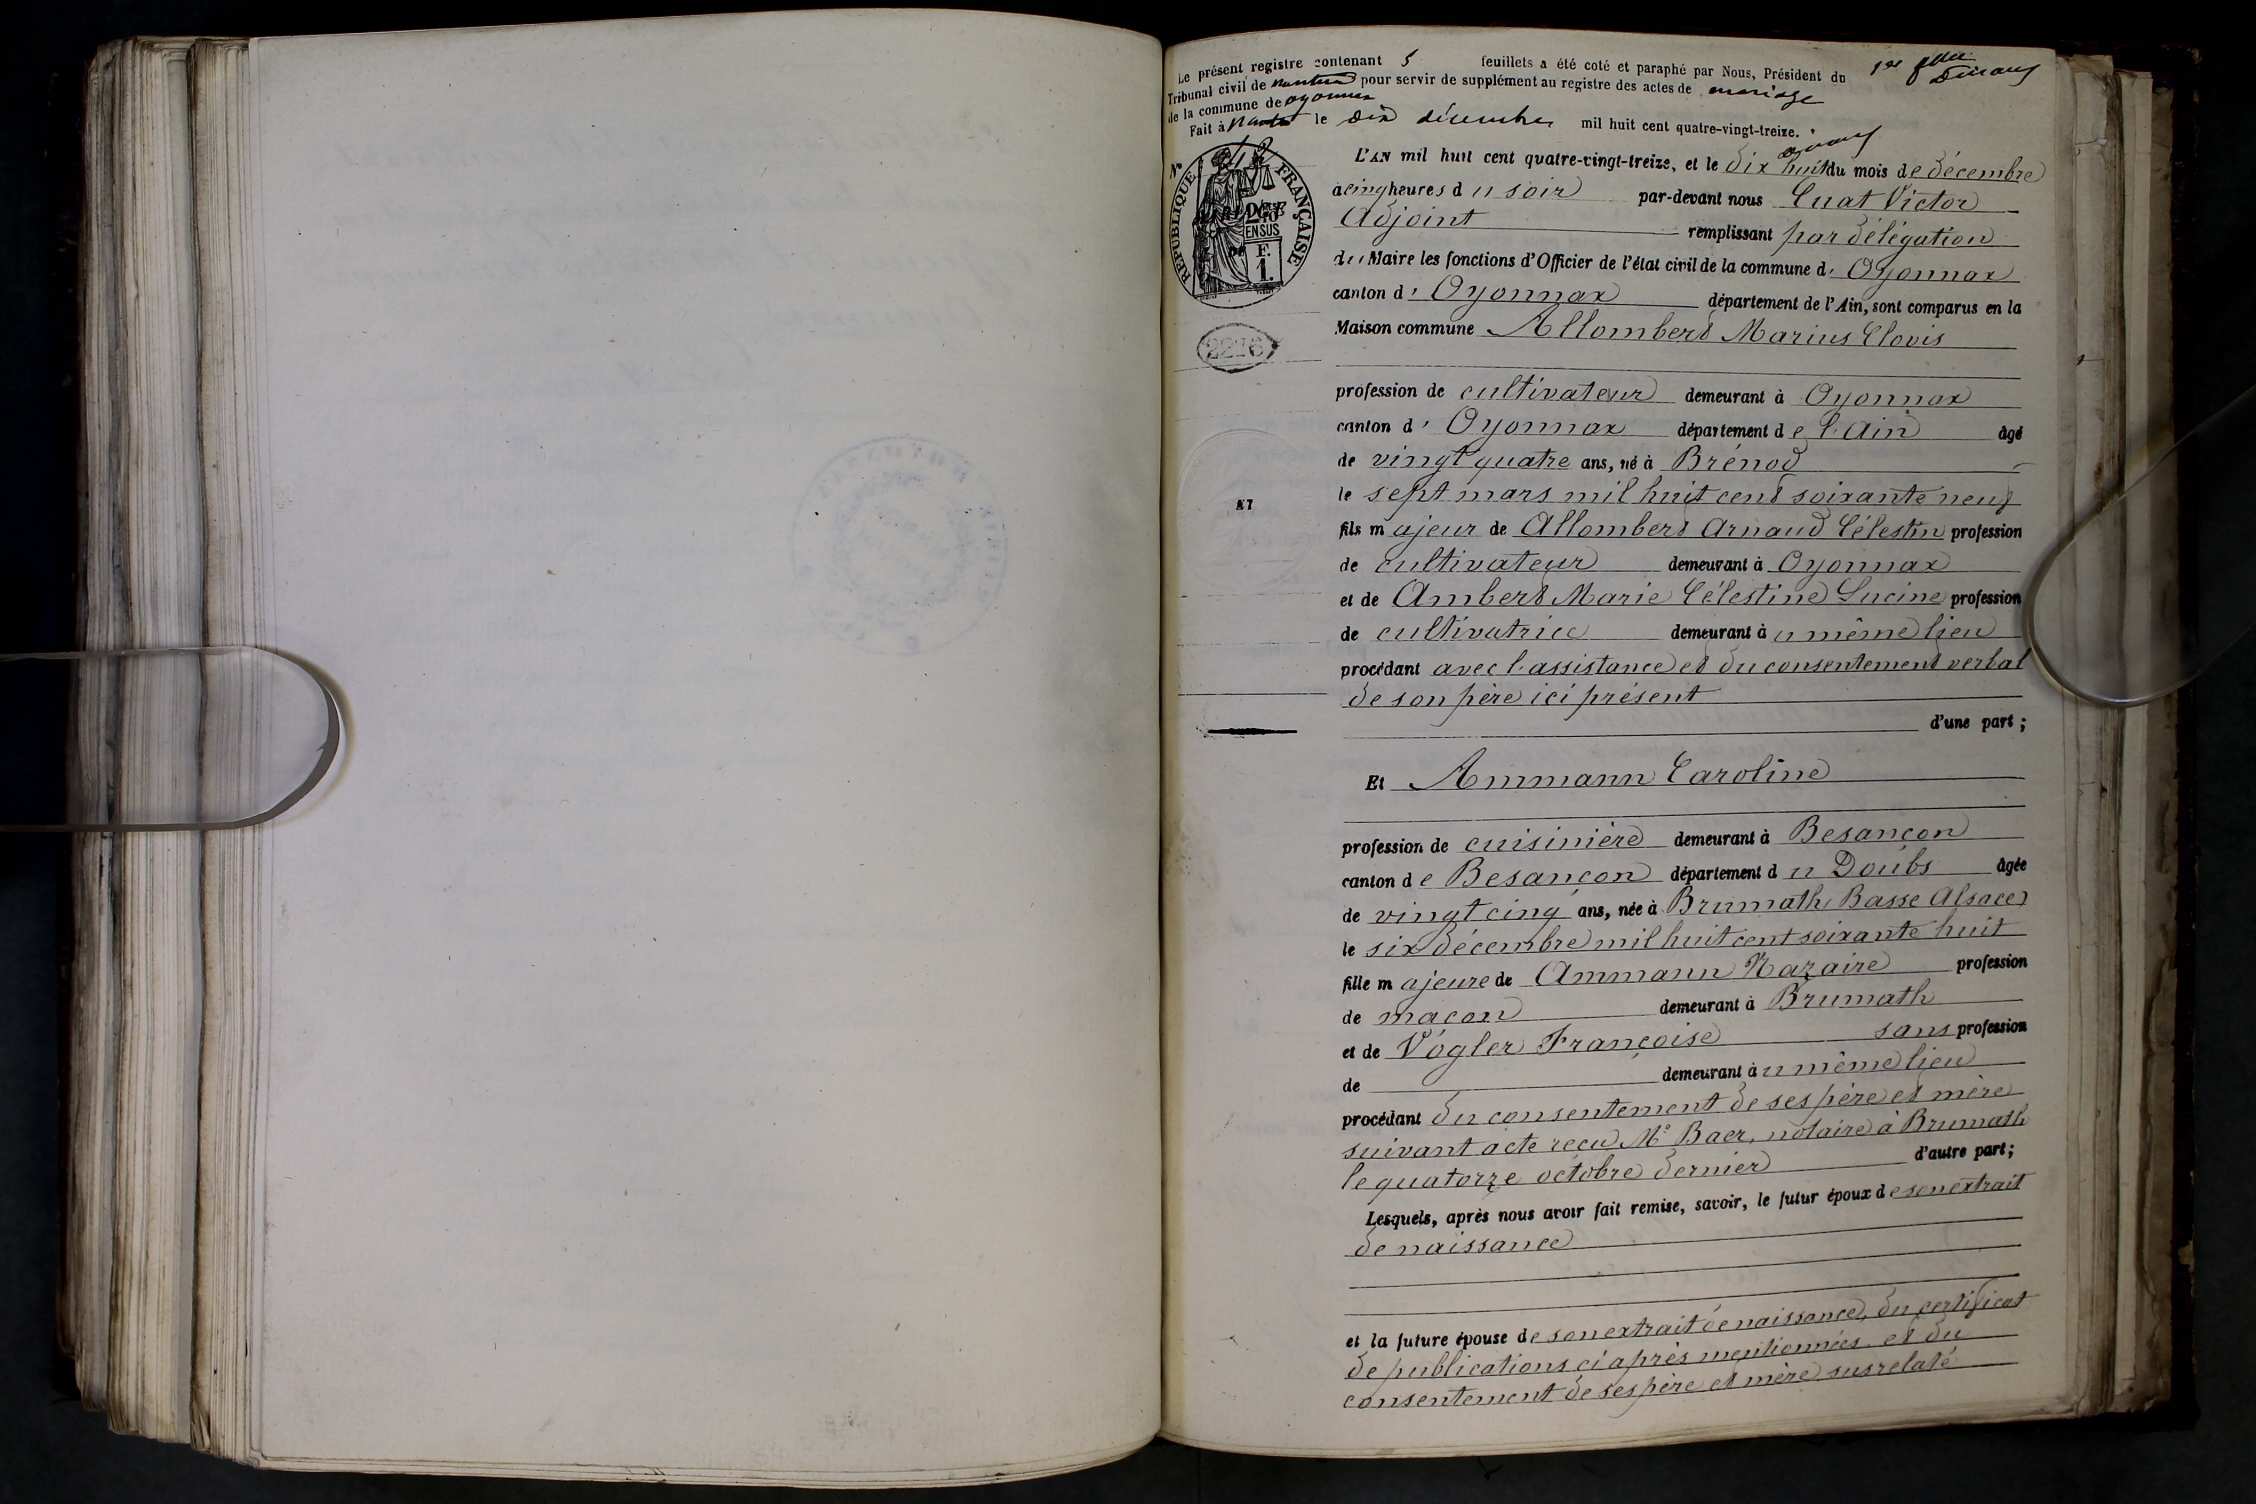 Le présent registre contenant 5 feuillets a été coté et paraphé par Nous, Président du
Tribunal civil de Nantua pour servir de supplément au registre des actes de mariage
de la commune de Oyonnax
Fait à Nantua le dix décembre mil huit cent quatre-vingt-treize.
L'AN mil huit cent quatre-vingt-treize, et le dix huit du mois de décembre
à cinq heures du soir par-devant nous Cuat Victor
Adjoint remplissant par délégation
du Maire les fonctions d'Officier de l'état civil de la commune d' Oyonnax
canton d' Oyonnax département de l'Ain, sont comparus en la
Maison commune Allombert Marius Clovis
profession de cultivateur demeurant à Oyonnax
canton d' Oyonnax département de l'Ain âgé
de vingt quatre ans, né à Brénod
le sept mars mil huit cent soixante neuf
fils majeur de Allombert Arnaud Célestin profession
de cultivateur demeurant à Oyonnax
et de Ambert Marie Célestine Lucine profession
de cultivatrice demeurant au même lieu
procédant avec l'assistance et du consentement verbal
de son père ici présent
d'une part ;
Et Ammann Caroline
profession de cuisinière demeurant à Besançon
canton de Besançon département du Doubs âgée
de vingt cinq ans, née à Brumath (Basse Alsace)
le six décembre mil huit cent soixante huit
fille majeure de Ammann Nazaire profession
de maçon demeurant à Brumath
et de Vogler Françoise sans profession
de demeurant au même lieu
procédant du consentement de ses père et mère
suivant acte reçu Me Baer, notaire à Brumath
le quatorze octobre dernier d'autre part ;
Lesquels, après nous avoir fait remise, savoir, le futur époux de son extrait
de naissance
et la future épouse de son extrait de naissance, du certificat
de publications ci après mentionnées et du
consentement de ses père et mère susrelaté
RÉPUBLIQUE FRANÇAISE
2/10 EN SUS
F. 1.
2276